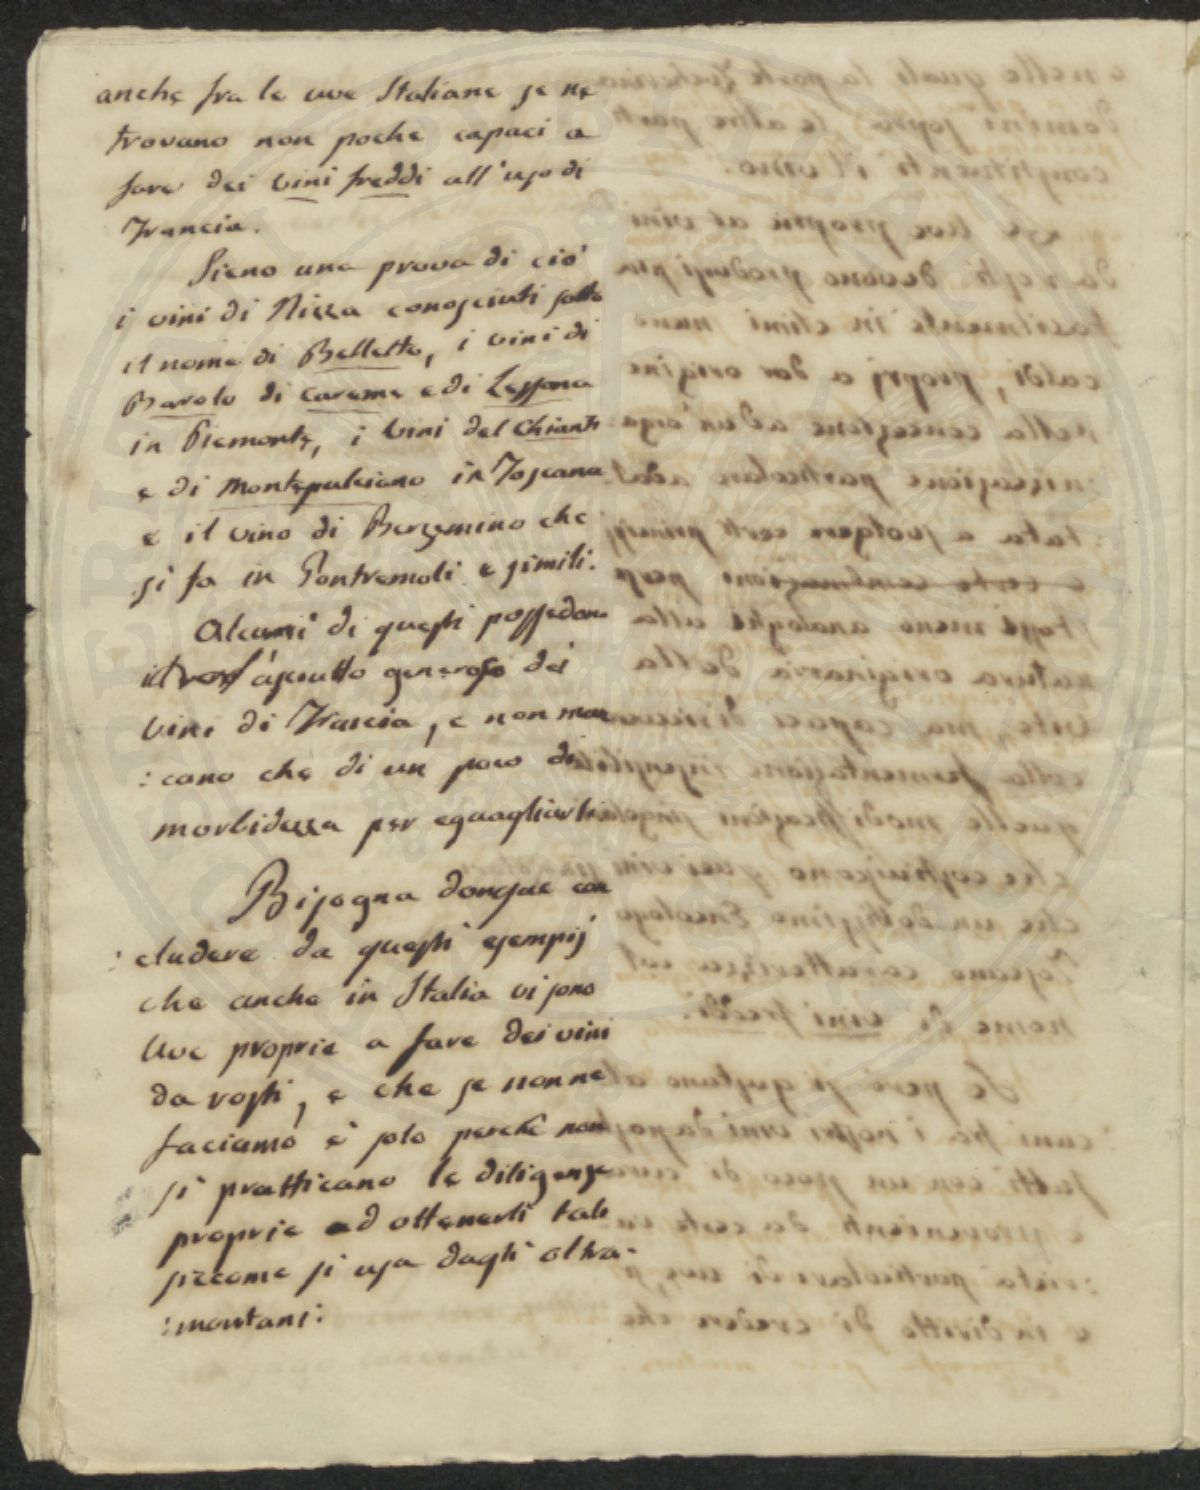 anche fra le uve Italiane se ne
trovano non poche capaci a
fare dei vini freddi all'uso di
Francia.
Sieno una prova di ciò
i vini di Nizza conosciuti sotto
il nome di Belletto, i vini di
Barolo di Careme e di Lessona
in Piemonte, i vini del Chianti
e di Montepulciano in Toscana
e il vino di Bergamino che
si fa in Pontremoli e simili.
Alcuni di questi possedono
l'asciutto generoso dei
vini di Francia, e non man
:cano che di un poco di
morbidezza per eguagliarli
Bisogna donque con
:cludere da questi esempij
che anche in Italia vi sono
Uve proprie a fare dei vini
da rosti, e che se non ne
faciamo è solo perchè non
si pratticano le diligenze
proprie ad ottenerli tali
siccome si usa dagli oltra-
:montani: